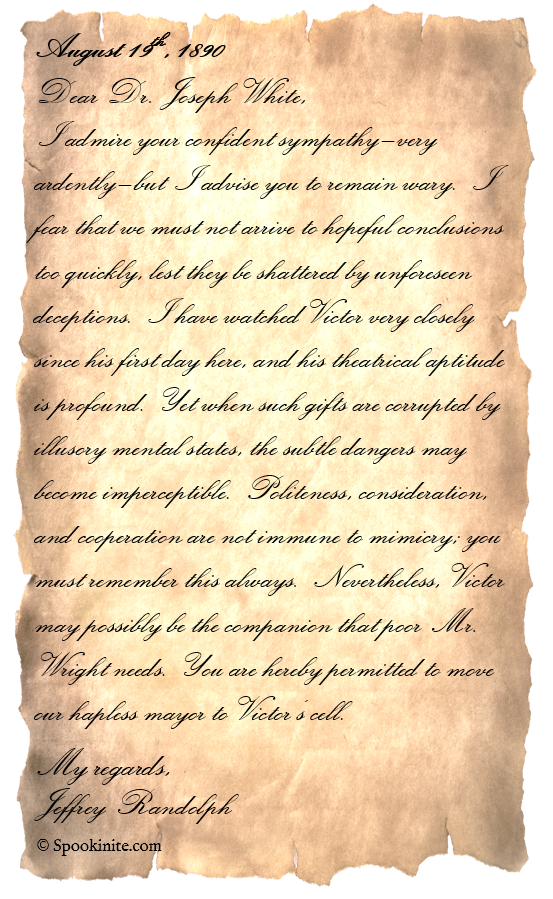 August 19th, 1890
Dear Dr. Joseph White,
I admire your confident sympathy—very
ardently—but I advise you to remain wary. I
fear that we must not arrive to hopeful conclusions
too quickly, lest they be shattered by unforeseen
deceptions. I have watched Victor very closely
since his first day here, and his theatrical aptitude
is profound. Yet when such gifts are corrupted by
illusory mental states, the subtle dangers may
become imperceptible. Politeness, consideration,
and cooperation are not immune to mimicry; you
must remember this always. Nevertheless, Victor
may possibly be the companion that poor Mr.
Wright needs. You are hereby permitted to move
our hapless mayor to Victor's cell.
My regards,
Jeffrey Randolph
© Spookinite.com